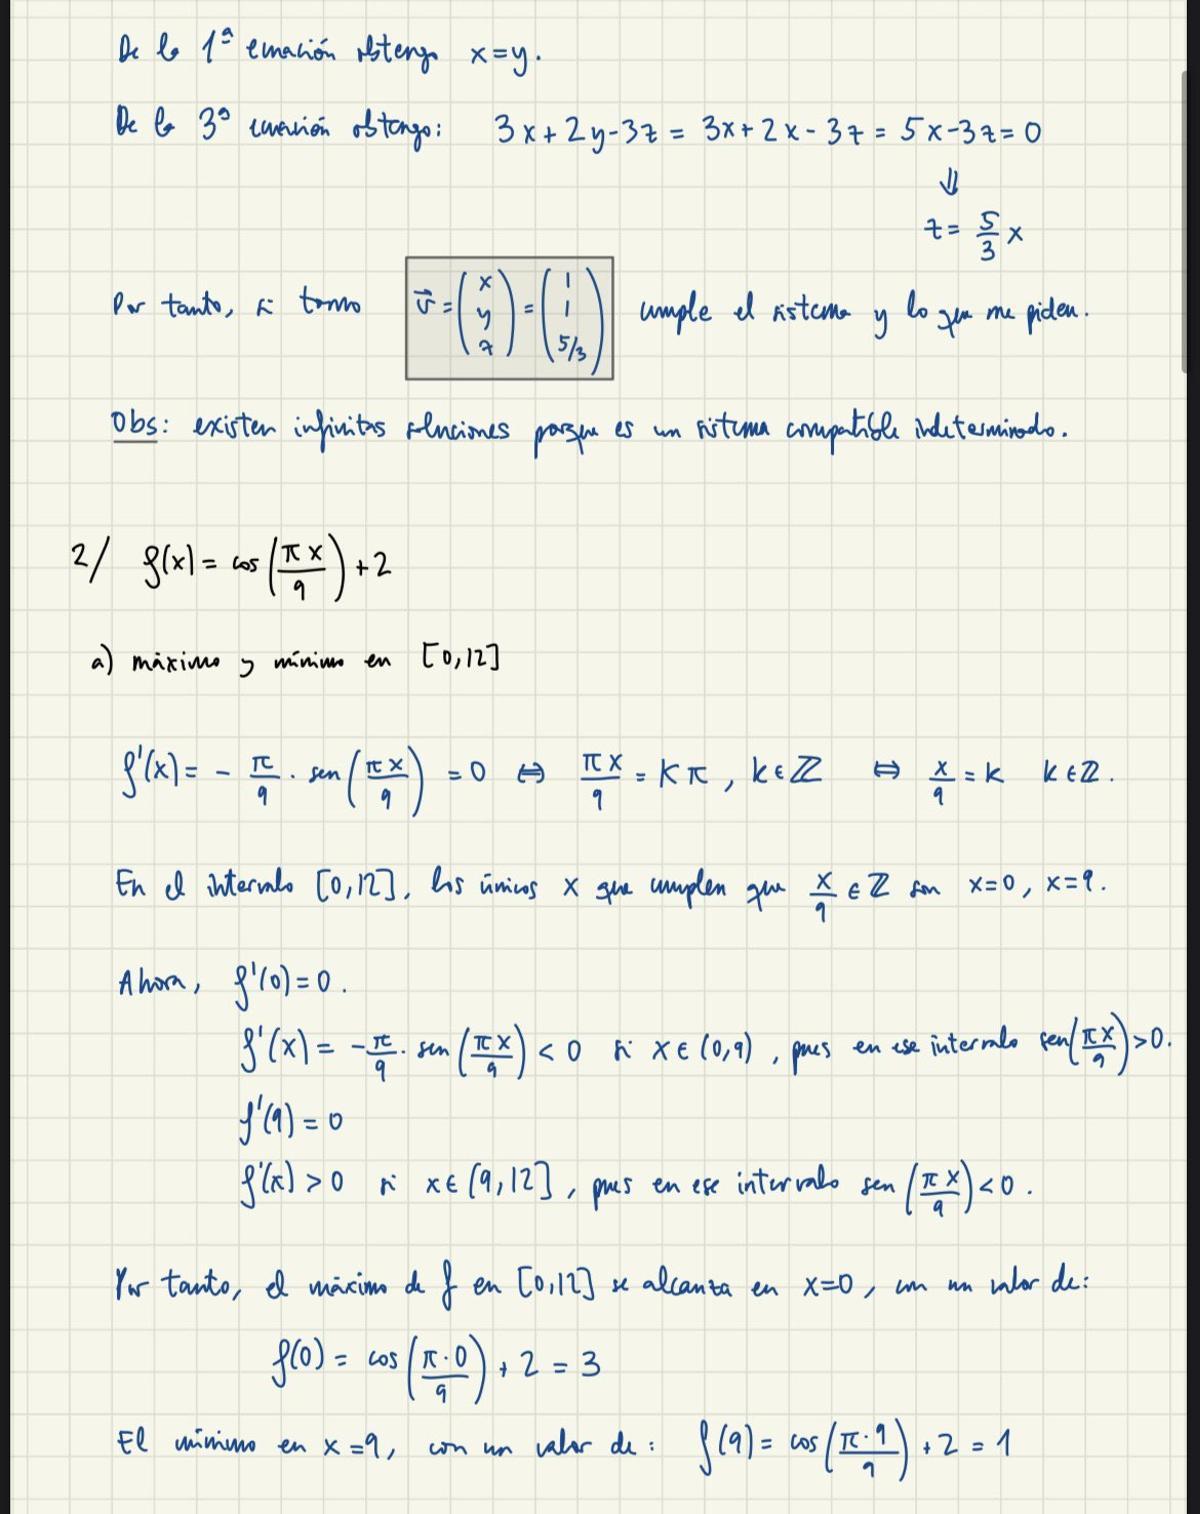 De la 1ª ecuación obtengo x=y.
De la 3ª ecuación obtengo: 3x+2y-3z = 3x+2x-3z = 5x-3z=0
⇓
z = 5/3 x
Por tanto, si tomo v⃗ = (x y z) = (1 1 5/3) cumple el sistema y lo que me piden.
Obs: existen infinitas soluciones porque es un sistema compatible indeterminado.
2/ f(x) = cos(πx/9) + 2
a) máximo y mínimo en [0,12]
f'(x) = - π/9 · sen(πx/9) = 0 ⇔ πx/9 = Kπ, k∈ℤ ⇔ x/9 = k k∈ℤ.
En el intervalo [0,12], los únicos x que cumplen que x/9 ∈ ℤ son x=0, x=9.
Ahora, f'(0)=0.
f'(x) = -π/9 · sen(πx/9) < 0 si x∈(0,9), pues en ese intervalo sen(πx/9)>0.
f'(9) = 0
f'(x) > 0 si x∈(9,12], pues en ese intervalo sen(πx/9)<0.
Por tanto, el máximo de f en [0,12] se alcanza en x=0, con un valor de:
f(0) = cos(π·0/9) + 2 = 3
El mínimo en x=9, con un valor de: f(9) = cos(π·9/9) + 2 = 1